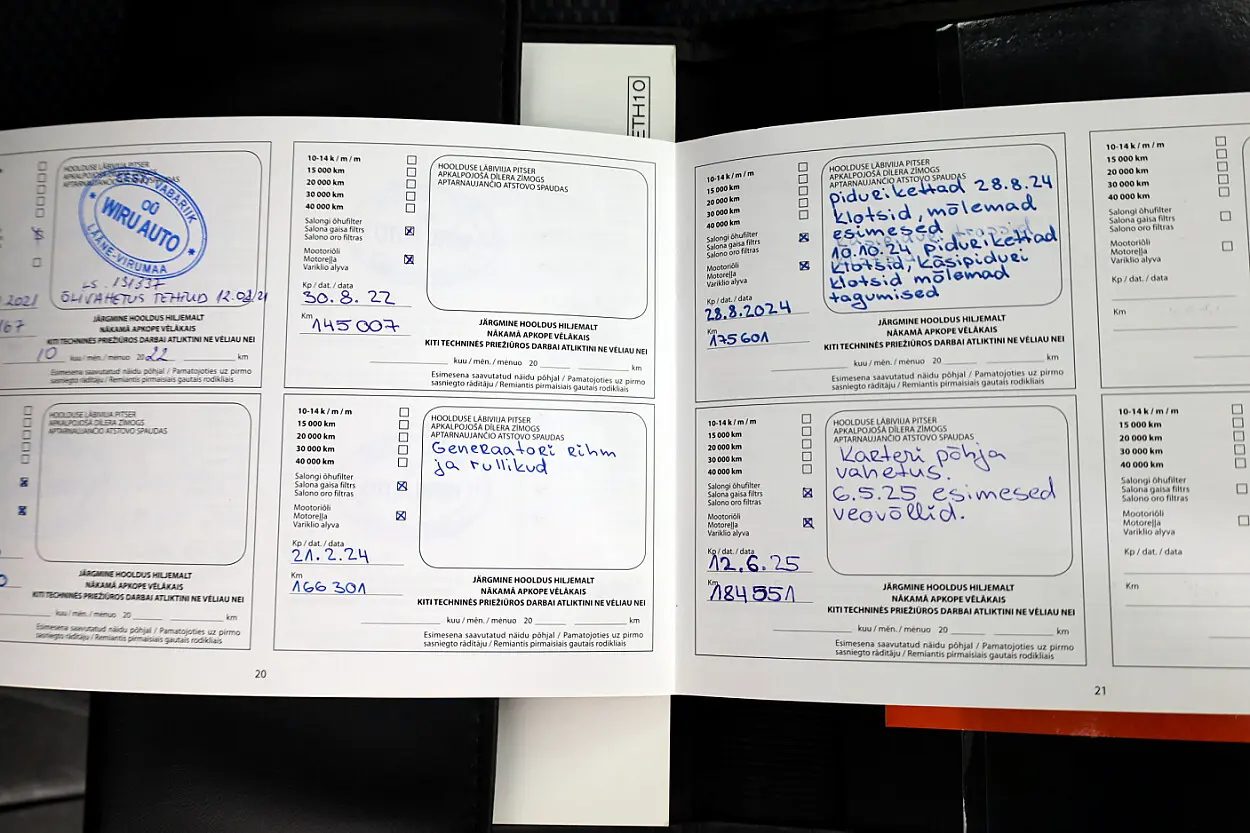 ETH10
HOOLDUSE LÄBIVIIJA PITSER
APKALPOJOŠĀ DĪLERA ZĪMOGS
APTARNAUJANČIO ATSTOVO SPAUDAS
EESTI VABARIIK
OÜ
WIRU AUTO
LÄÄNE-VIRUMAA
LS. 131337
ÕLIVAHETUS TEHTUD 12.02.21
2021
167
JÄRGMINE HOOLDUS HILJEMALT
NĀKAMĀ APKOPE VĒLĀKAIS
KITI TECHNINĖS PRIEŽIŪROS DARBAI ATLIKTINI NE VĖLIAU NEI
10 kuu / mēn. / mėnuo 2022 km
Esimesena saavutatud näidu põhjal / Pamatojoties uz pirmo
sasniegto rādītāju / Remiantis pirmaisiais gautais rodikliais
10-14 k / m / m
15 000 km
20 000 km
30 000 km
40 000 km
Salongi õhufilter
Salona gaisa filtrs
Salono oro filtras
Mootoriõli
Motoreļļa
Variklio alyva
Kp / dat. / data
30.8.22
Km
145 007
HOOLDUSE LÄBIVIIJA PITSER
APKALPOJOŠĀ DĪLERA ZĪMOGS
APTARNAUJANČIO ATSTOVO SPAUDAS
JÄRGMINE HOOLDUS HILJEMALT
NĀKAMĀ APKOPE VĒLĀKAIS
KITI TECHNINĖS PRIEŽIŪROS DARBAI ATLIKTINI NE VĖLIAU NEI
kuu / mēn. / mėnuo 20 km
Esimesena saavutatud näidu põhjal / Pamatojoties uz pirmo
sasniegto rādītāju / Remiantis pirmaisiais gautais rodikliais
HOOLDUSE LÄBIVIIJA PITSER
APKALPOJOŠĀ DĪLERA ZĪMOGS
APTARNAUJANČIO ATSTOVO SPAUDAS
0
JÄRGMINE HOOLDUS HILJEMALT
NĀKAMĀ APKOPE VĒLĀKAIS
KITI TECHNINĖS PRIEŽIŪROS DARBAI ATLIKTINI NE VĖLIAU NEI
kuu / mēn. / mėnuo 20 km
Esimesena saavutatud näidu põhjal / Pamatojoties uz pirmo
sasniegto rādītāju / Remiantis pirmaisiais gautais rodikliais
10-14 k / m / m
15 000 km
20 000 km
30 000 km
40 000 km
Salongi õhufilter
Salona gaisa filtrs
Salono oro filtras
Mootoriõli
Motoreļļa
Variklio alyva
Kp / dat. / data
21.2.24
Km
166 301
HOOLDUSE LÄBIVIIJA PITSER
APKALPOJOŠĀ DĪLERA ZĪMOGS
APTARNAUJANČIO ATSTOVO SPAUDAS
Generaatori rihm
ja rullikud
JÄRGMINE HOOLDUS HILJEMALT
NĀKAMĀ APKOPE VĒLĀKAIS
KITI TECHNINĖS PRIEŽIŪROS DARBAI ATLIKTINI NE VĖLIAU NEI
kuu / mēn. / mėnuo 20 km
Esimesena saavutatud näidu põhjal / Pamatojoties uz pirmo
sasniegto rādītāju / Remiantis pirmaisiais gautais rodikliais
20
10-14 k / m / m
15 000 km
20 000 km
30 000 km
40 000 km
Salongi õhufilter
Salona gaisa filtrs
Salono oro filtras
Mootoriõli
Motoreļļa
Variklio alyva
Kp / dat. / data
28.8.2024
Km
175601
HOOLDUSE LÄBIVIIJA PITSER
APKALPOJOŠĀ DĪLERA ZĪMOGS
APTARNAUJANČIO ATSTOVO SPAUDAS
pidurikettad 28.8.24
klotsid, mõlemad
esimesed
10.10.24 pidurikettad
klotsid, käsipiduri
klotsid mõlemad
tagumised
JÄRGMINE HOOLDUS HILJEMALT
NĀKAMĀ APKOPE VĒLĀKAIS
KITI TECHNINĖS PRIEŽIŪROS DARBAI ATLIKTINI NE VĖLIAU NEI
kuu / mēn. / mėnuo 20 km
Esimesena saavutatud näidu põhjal / Pamatojoties uz pirmo
sasniegto rādītāju / Remiantis pirmaisiais gautais rodikliais
10-14 k / m / m
15 000 km
20 000 km
30 000 km
40 000 km
Salongi õhufilter
Salona gaisa filtrs
Salono oro filtras
Mootoriõli
Motoreļļa
Variklio alyva
Kp / dat. / data
Km
10-14 k / m / m
15 000 km
20 000 km
30 000 km
40 000 km
Salongi õhufilter
Salona gaisa filtrs
Salono oro filtras
Mootoriõli
Motoreļļa
Variklio alyva
Kp / dat. / data
12.6.25
Km
184551
HOOLDUSE LÄBIVIIJA PITSER
APKALPOJOŠĀ DĪLERA ZĪMOGS
APTARNAUJANČIO ATSTOVO SPAUDAS
Karteri põhja
vahetus.
6.5.25 esimesed
veovõllid.
JÄRGMINE HOOLDUS HILJEMALT
NĀKAMĀ APKOPE VĒLĀKAIS
KITI TECHNINĖS PRIEŽIŪROS DARBAI ATLIKTINI NE VĖLIAU NEI
kuu / mēn. / mėnuo 20 km
Esimesena saavutatud näidu põhjal / Pamatojoties uz pirmo
sasniegto rādītāju / Remiantis pirmaisiais gautais rodikliais
10-14 k / m / m
15 000 km
20 000 km
30 000 km
40 000 km
Salongi õhufilter
Salona gaisa filtrs
Salono oro filtras
Mootoriõli
Motoreļļa
Variklio alyva
Kp / dat. / data
Km
21